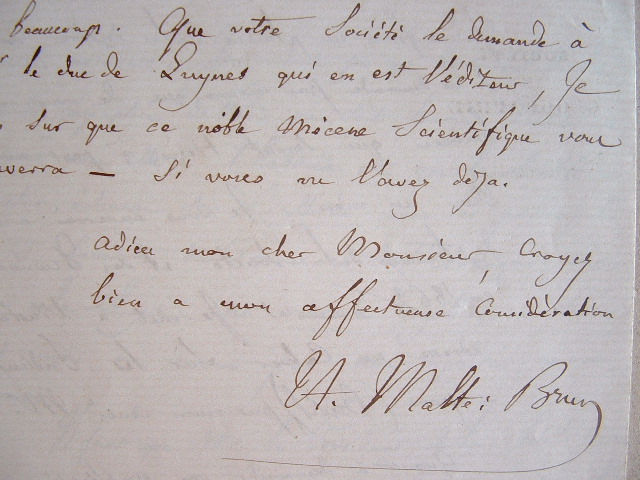 beaucoup. Que votre Société le demande à
le duc de Luynes qui en est l'éditeur, Je
sur que ce noble Mécène Scientifique vous
verra — Si vous ne l'avez déja.
adieu mon cher Monsieur, croyez
bien a mon affectueuse Considération
V.A. Malte-Brun